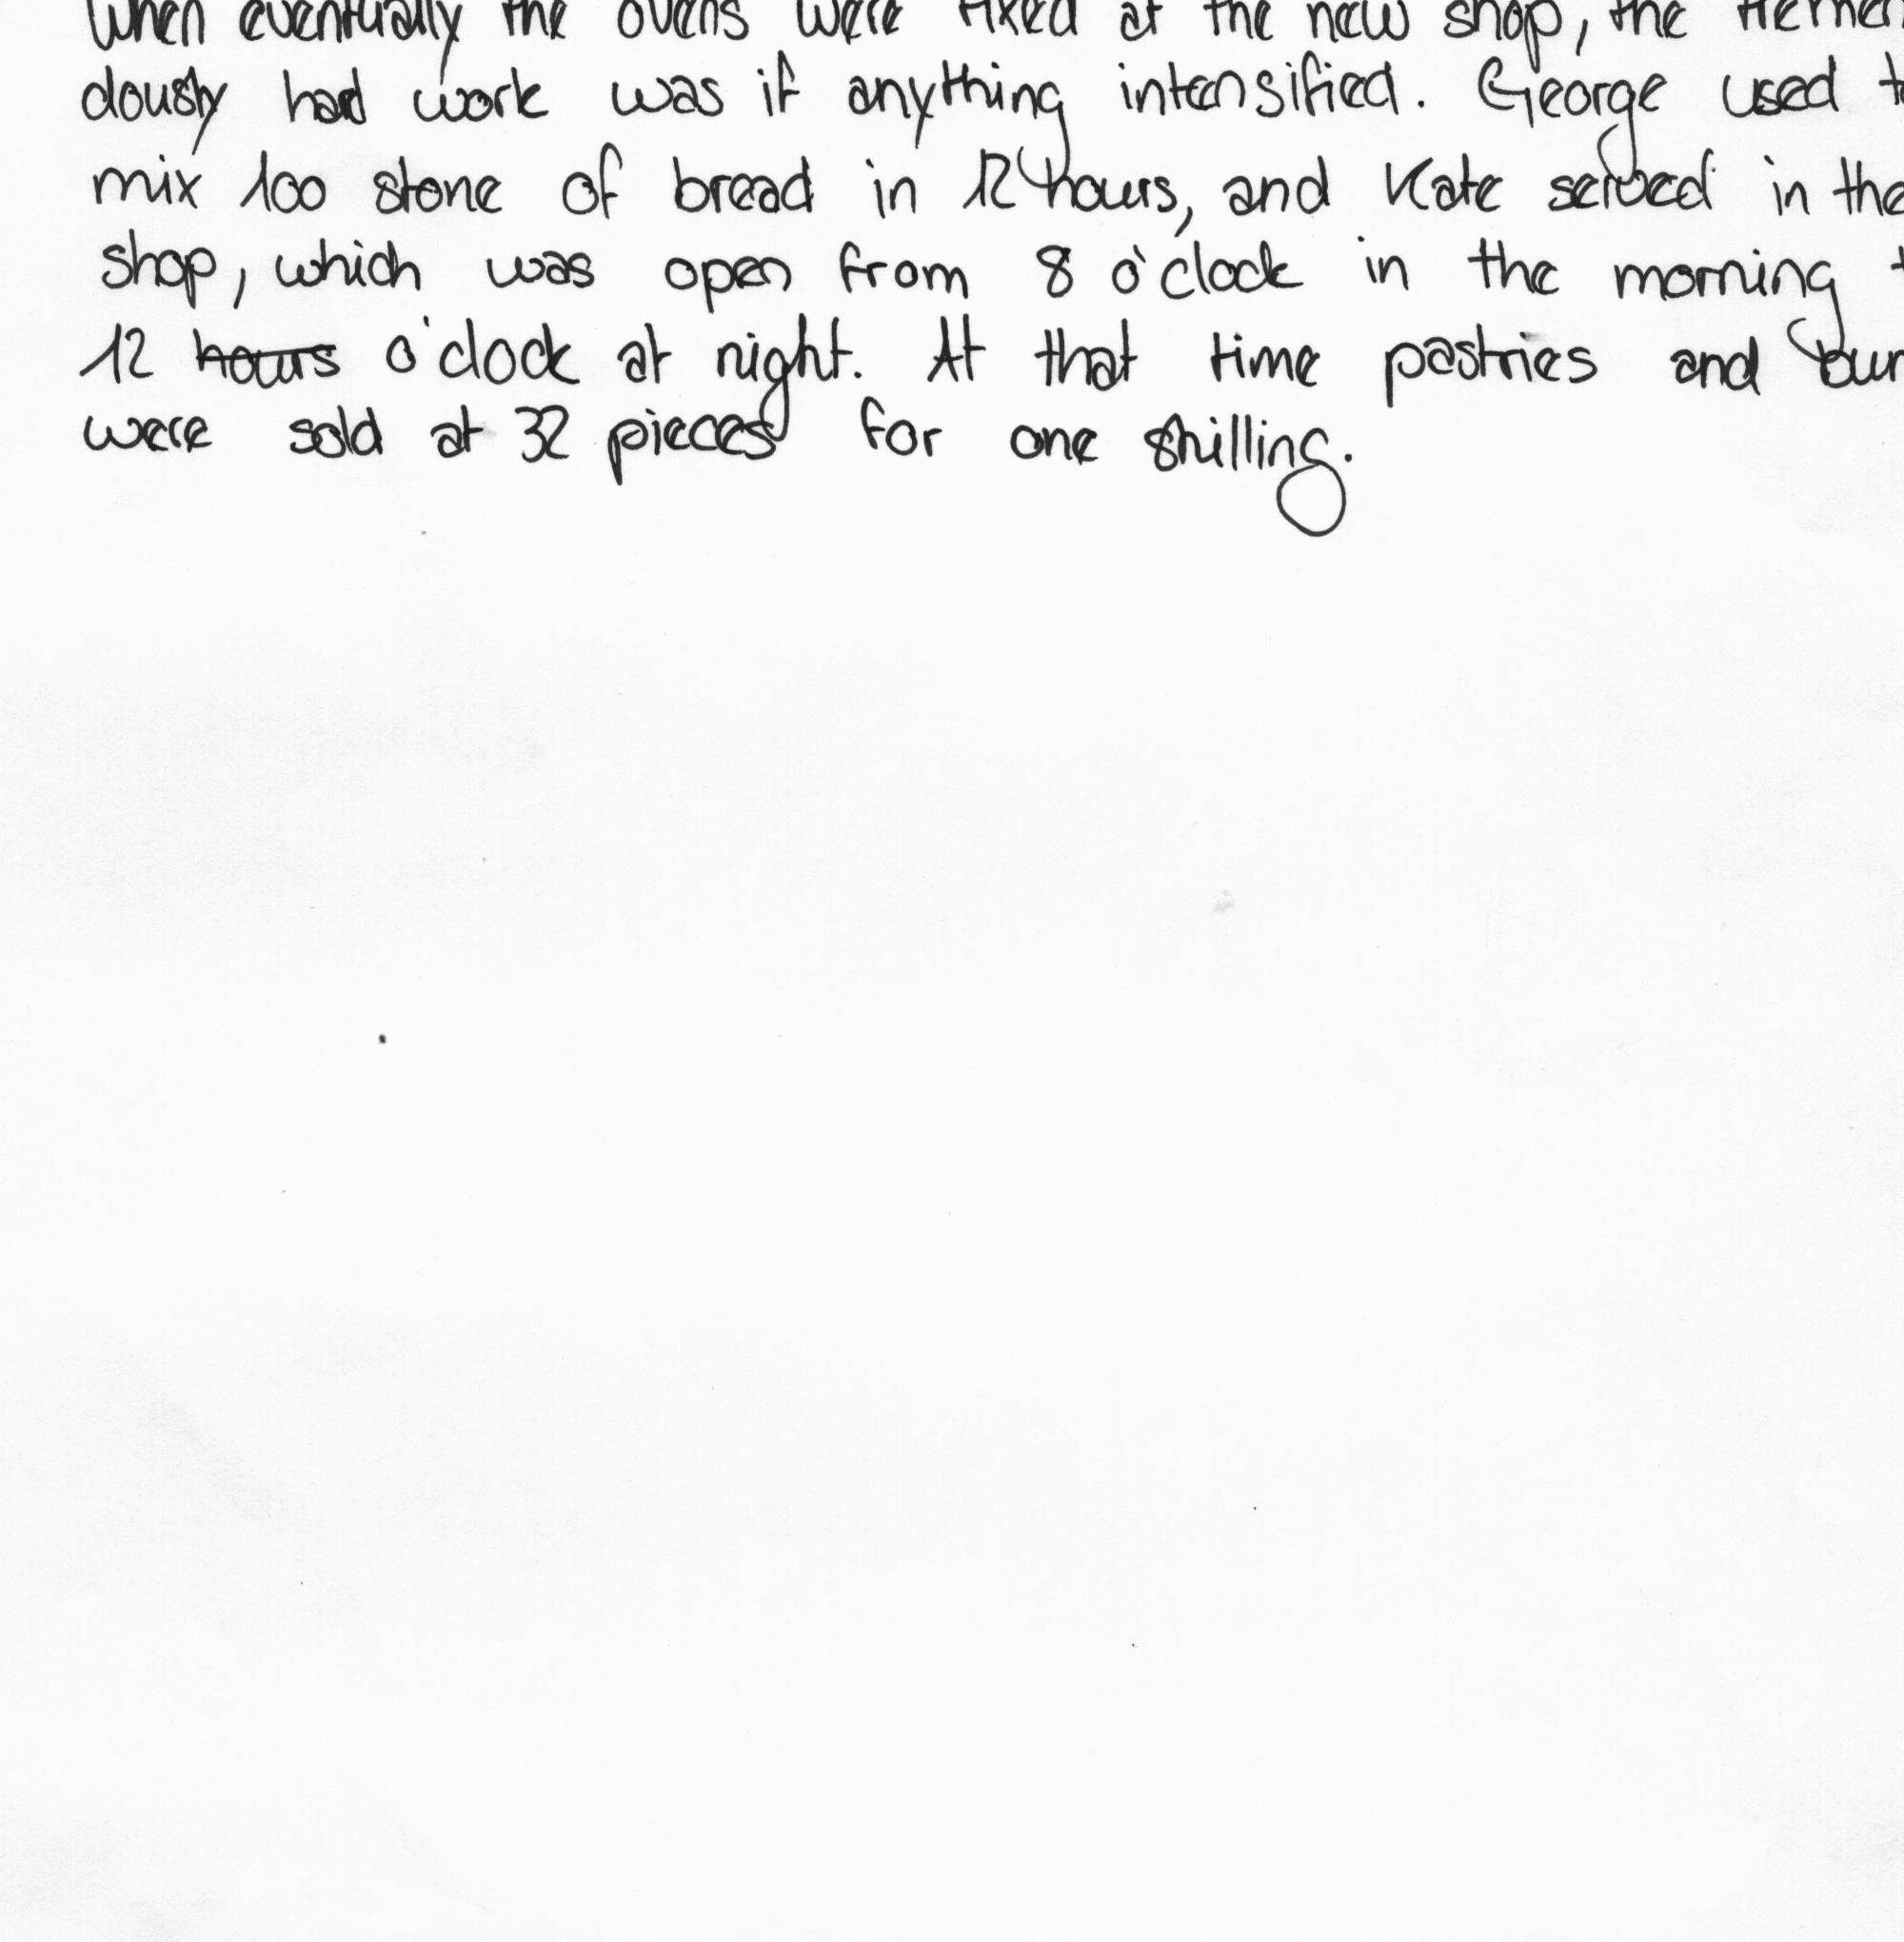 When eventually the ovens were fixed at the new shop, the tremen
dously hard work was if anything intensified. George used to
mix 100 stone of bread in 12 hours, and Kate served in the
shop, which was open from 8 o'clock in the morning t
12 hours o'clock at night. At that time pastries and bun
were sold at 32 pieces for one shilling.